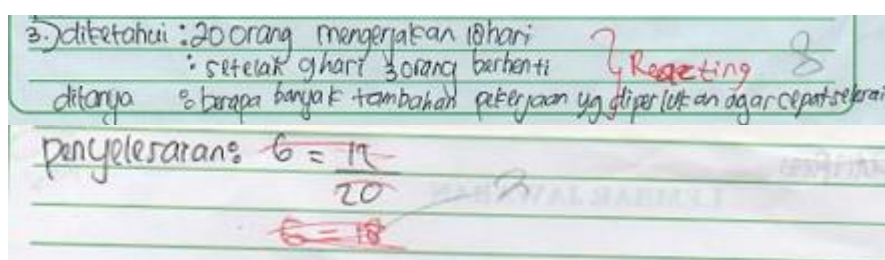 3.) diketahui : 20 orang mengerjakan 18 hari
: setelah 9 hari 3 orang berhenti } Reacting 8
ditanya : berapa banyak tambahan pekerjaan yg diperlukan agar cepat selesai
penyelesaian: 6 = 17
20
6 = 18
LEMBAR JAWABAN